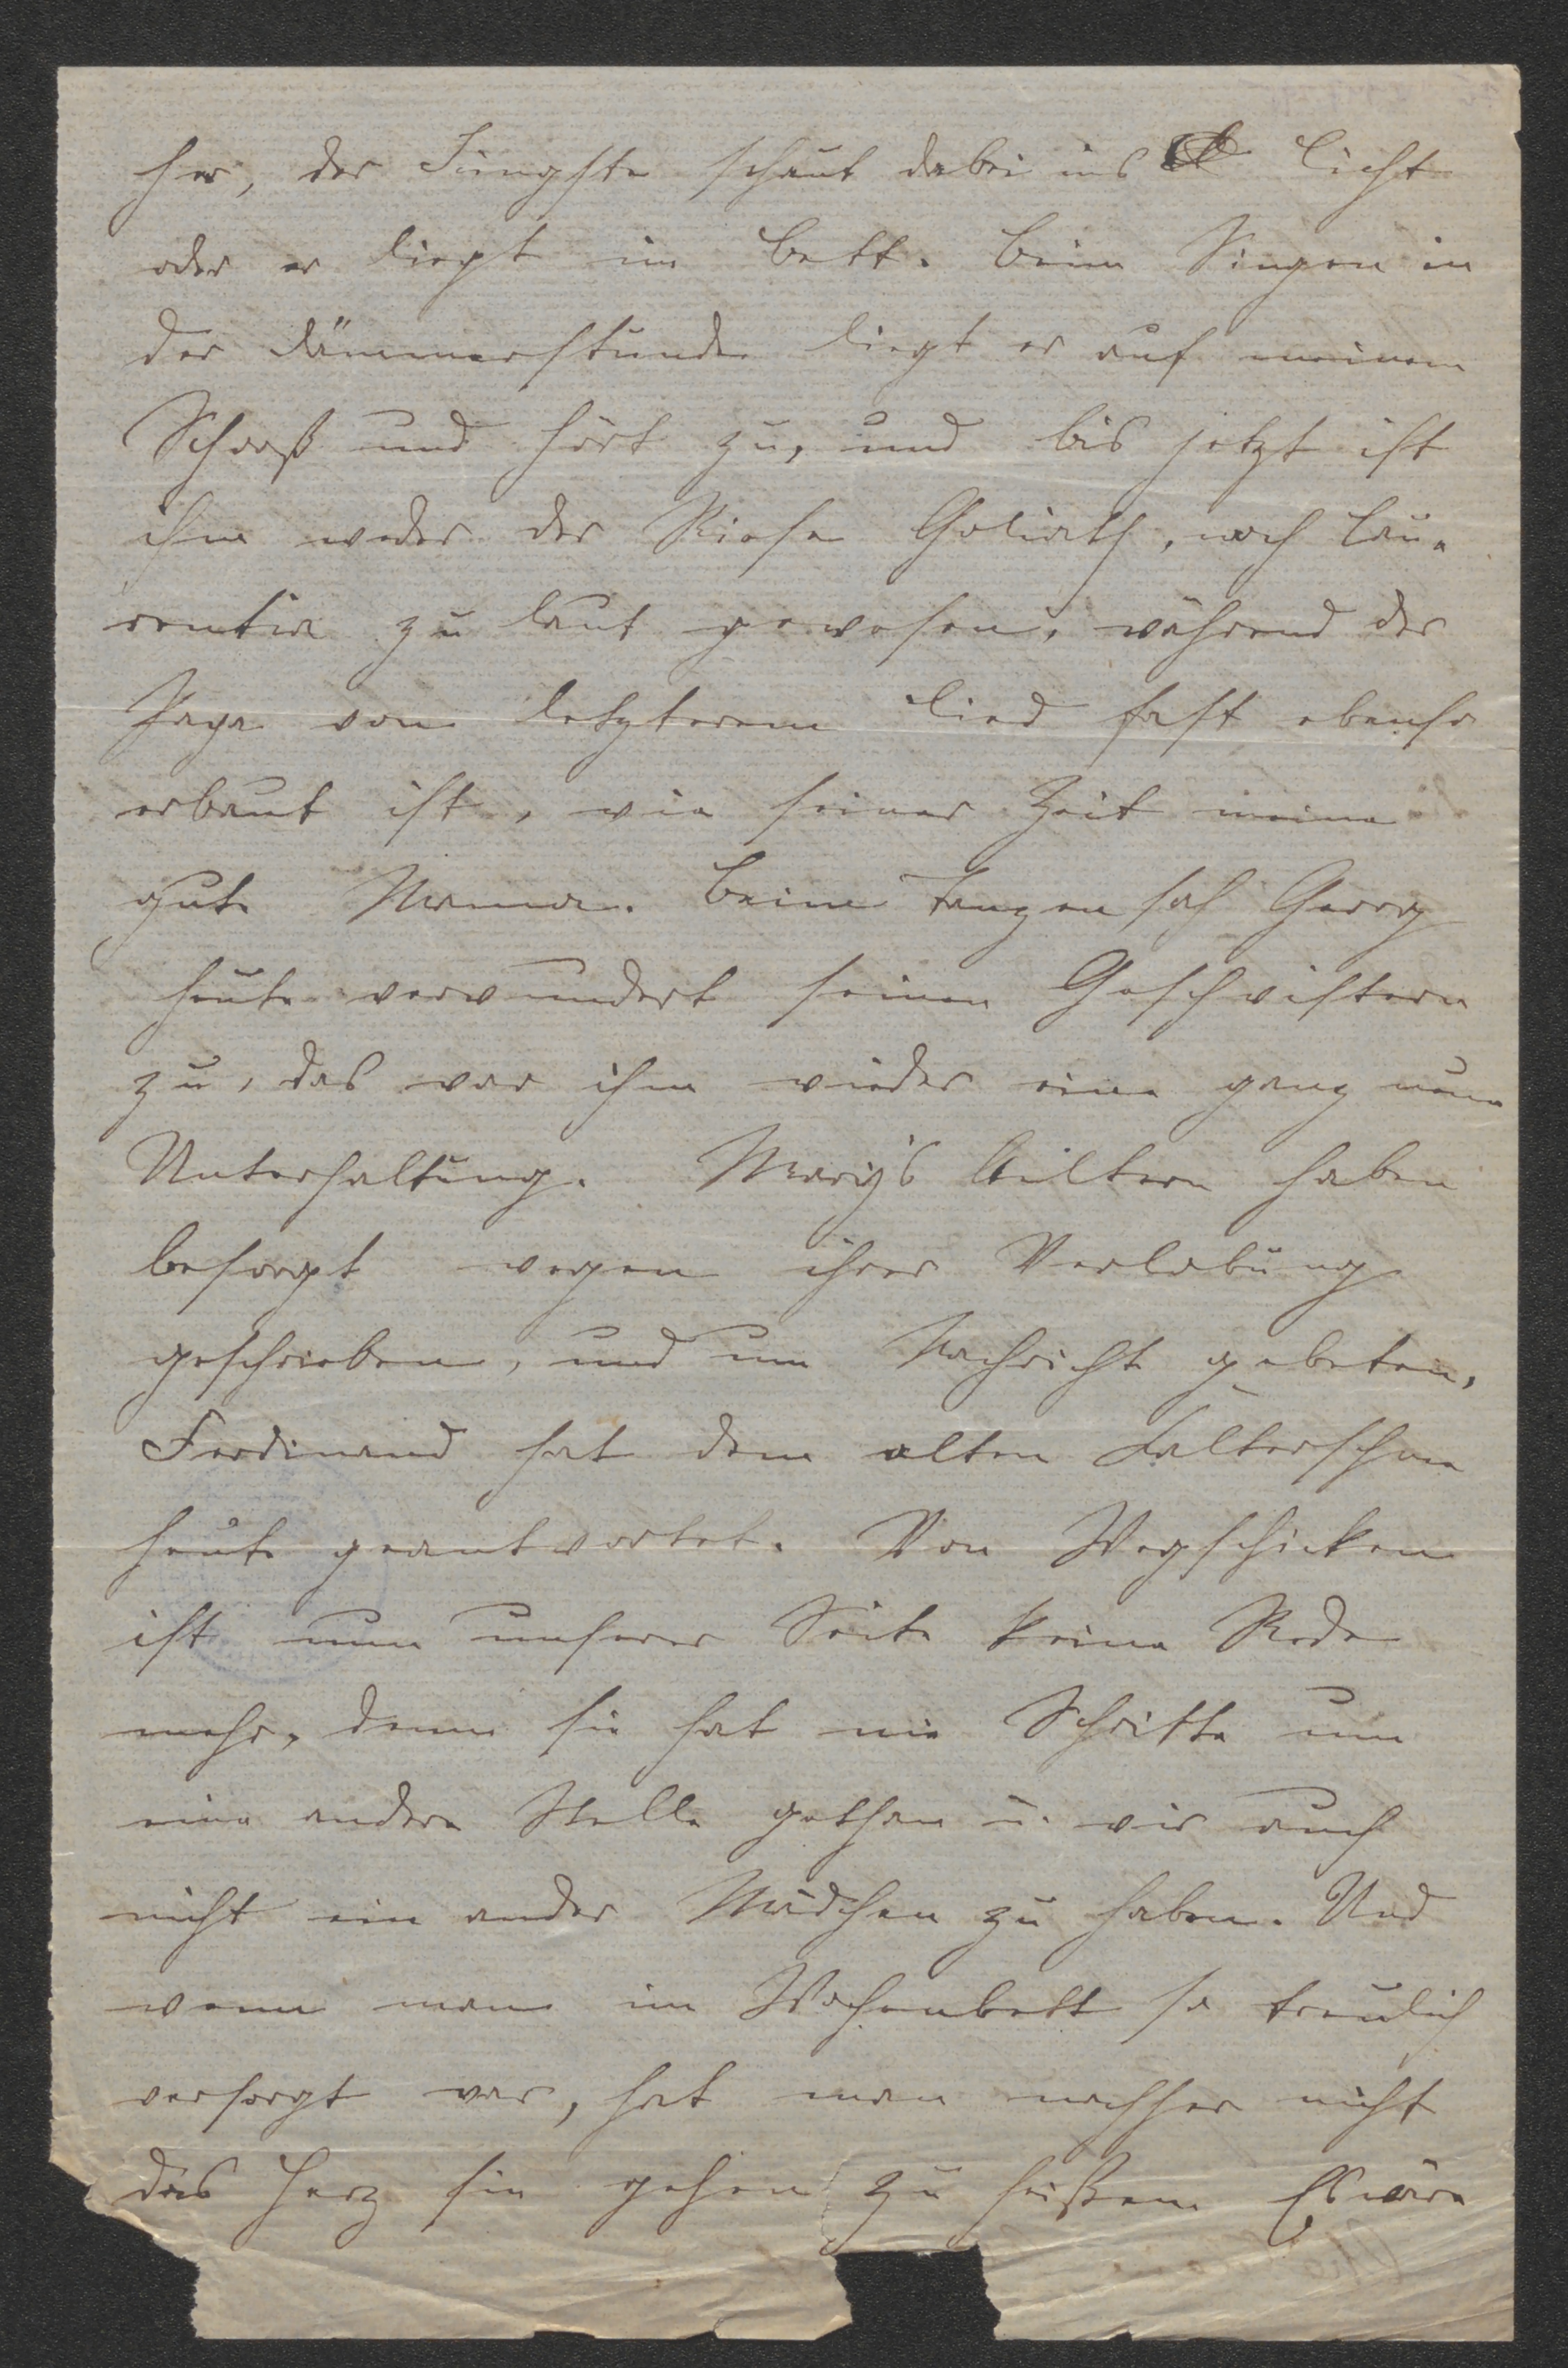 her, der Jüngste schaut dabei ins Licht
oder er liegt im Bett. Beim Singen in
der Dämmerstunde liegt er auf meinem
Schooß und hört zu, und bis jetzt ist
ihm weder der Riese Goliath, noch Lau-
rentia zu laut gewesen, während der
Papa von letzterem Lied fast ebenso
erbaut ist, wie seiner Zeit meine
gute Mama. Beim Tanzen sah Georg
heute verwundert seinen Geschwistern
zu, das war ihm wieder eine ganz neue
Unterhaltung. Mary's Eltern haben
besorgt wegen ihrer Verlobung
geschrieben, und um Nachricht gebeten,
Ferdinand hat dem alten
heute geantwortet. Von Wegschicken
ist nun unserer Seite keine Rede
mehr, denn sie hat nie Schritte um
eine andere Stelle gethan u. wir auch
nicht ein ander Mädchen zu haben. Und
wenn man im Wochenbett so treulich
versorgt war, hat man nachher nicht
das Herz sie gehen zu heißen. Es wäre